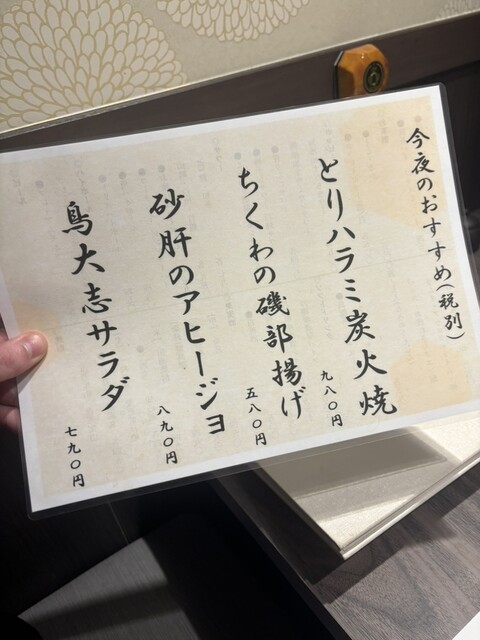 今夜のおすすめ(税別)
とりハラミ炭火焼
九八〇円
ちくわの磯部揚げ
五八〇円
砂肝のアヒージョ
八九〇円
鳥大志サラダ
七九〇円